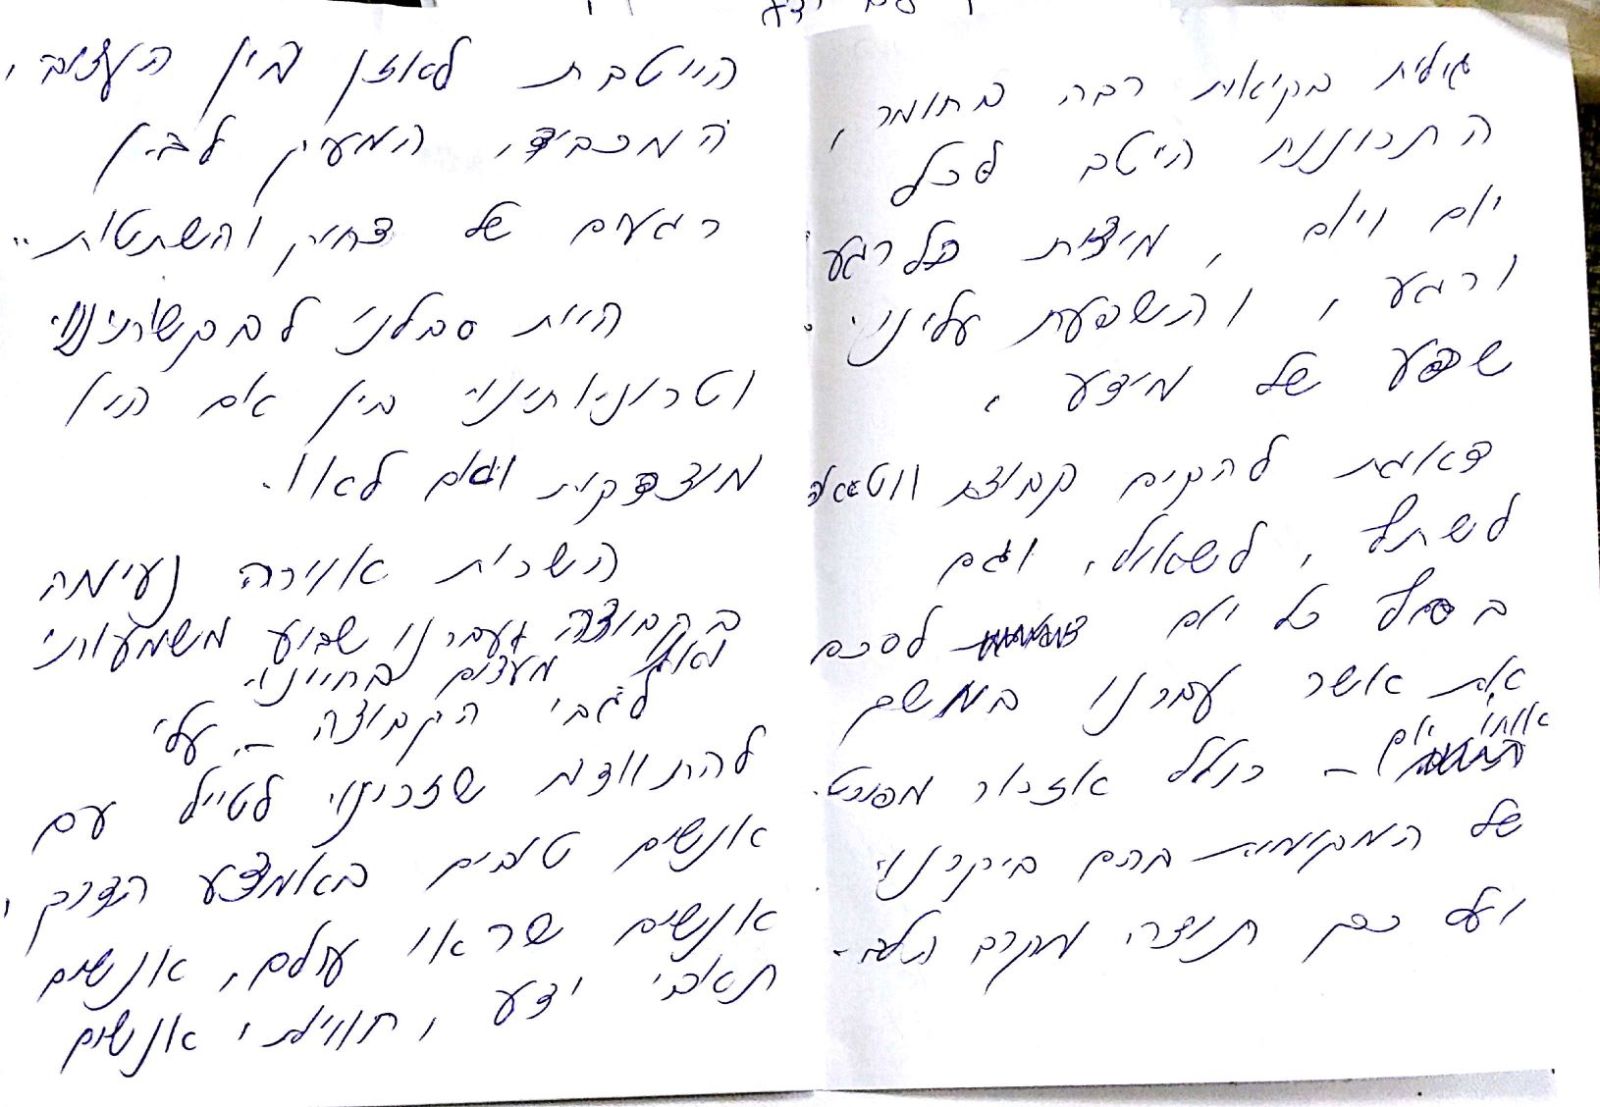 גילית בקיאות רבה בחומר,
התכוננת היטב לכל
יום ויום, מיצית כל רגע
ורגע, והשפעת עלינו
שפע של מידע,
דאגת להקים קבוצת ווטסאפ
לשתף, לשאול, וגם
בסוף כל יום לסכם
את אשר עברנו במשך
אותו יום
– כולל אזכור מפורט
של המקומות בהם ביקרנו
ועל כך תודה מקרב הלב -
הייטבת לאזן בין העצוב,
המכביד, המעיק לבין
רגעים של צחוק והשתטות..
היית סבלני לבקשותינו
וטרוניותינו בין אם היו
מוצדקות וגם לאו.
השרית אוירה נעימה
בקבוצה ועברנו שבוע משמעותי
ואף מעצים בחיינו.
לגבי הקבוצה – עלי
להתוודות שזכינו לטייל עם
אנשים טובים באמצע הדרך,
אנשים שראו עולם, אנשים
תאבי ידע, חוויות, אנשים